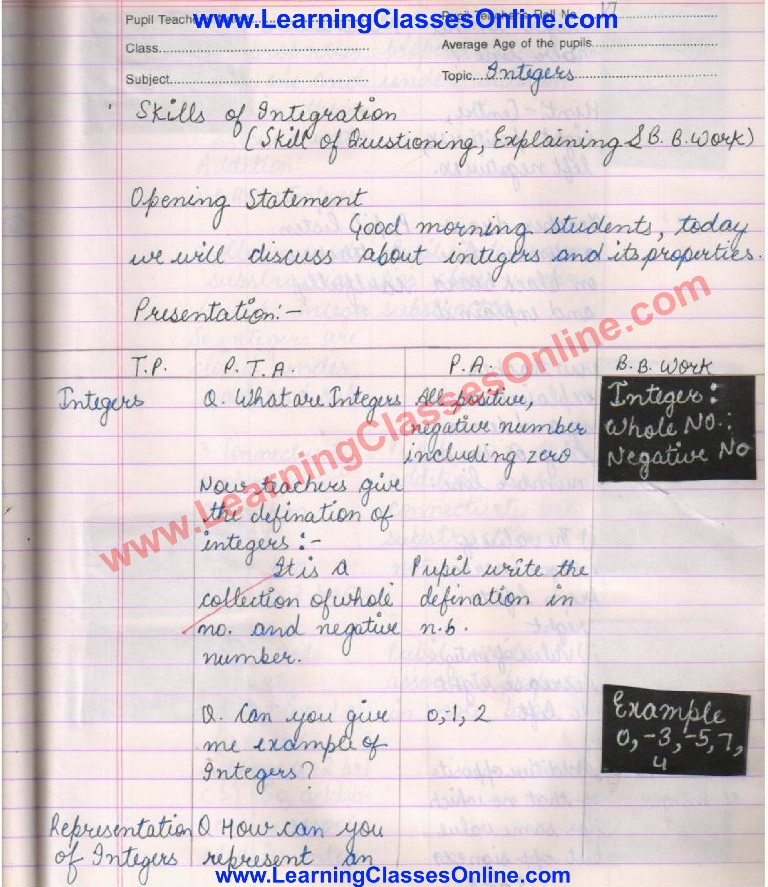 www.LearningClassesOnline.com
Pupil Teacher's Roll No. 17
Class
Average Age of the pupils
Subject
Topic Integers
Skills of Integration
(Skill of Questioning, Explaining & B.B. Work)
Opening Statement
Good morning students, today
we will discuss about intigers and its properties.
Presentation:-
T.P. P.T.A. P.A. B.B. Work
Integers
Q. What are Integers
All positive,
negative number
including zero
Integer:
Whole No.:
Negative No
Now teachers give
the defination of
integers :-
It is a
collection of whole
no. and negative
number.
Pupil write the
defination in
n.b.
Q. Can you give
me example of
Integers?
0,-1, 2
Example
0, -3, -5, 7,
4
Representation
of Integers
Q How can you
represent an
www.LearningClassesOnline.com
www.LearningClassesOnline.com